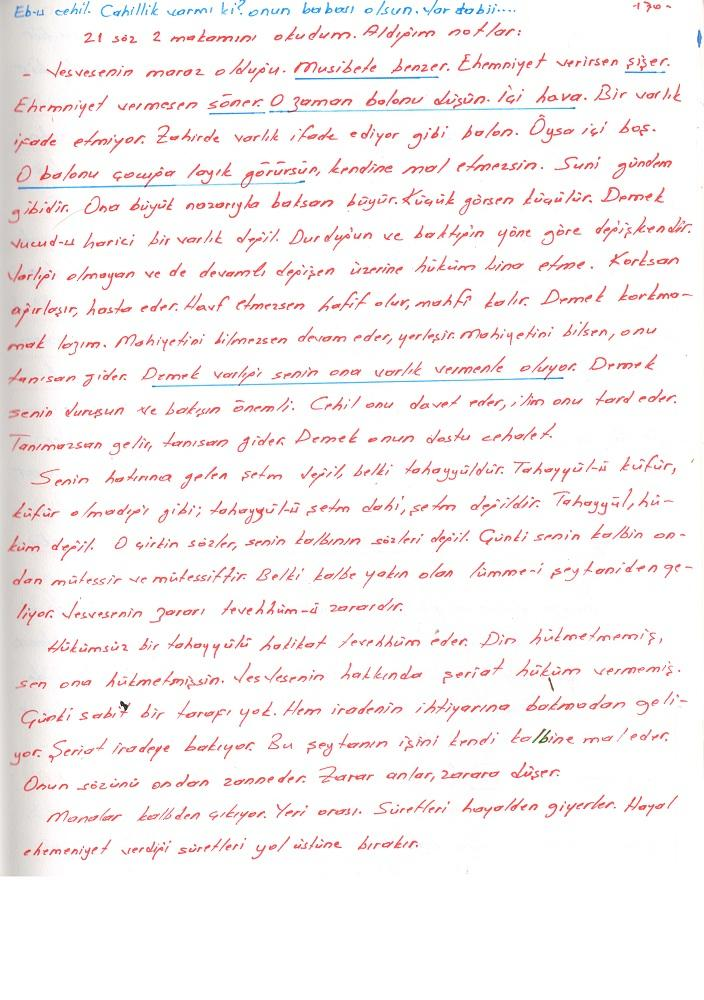 Eb-u cehil. Cahillik varmı ki? onun babası olsun. Var tabii....
-170-
21 söz 2 makamını okudum. Aldığım notlar:
- Vesvesenin maraz olduğu. Musibete benzer. Ehemniyet verirsen şişer.
Ehemniyet vermesen söner. O zaman balonu düşün. İçi hava. Bir varlık
ifade etmiyor. Zahirde varlık ifade ediyor gibi balon. Öysa içi boş.
O balonu çocuğa layık görürsün, kendine mal etmezsin. Suni gündem
gibidir. Ona büyük nazarıyla baksan büyür. Küçük görsen küçülür. Demek
vucud-u harici bir varlık değil. Durduğun ve baktığın yöne göre değişkendir.
Varlığı olmayan ve de devamlı değişen üzerine hüküm bina etme. Korksan
ağırlaşır, hasta eder. Havf etmezsen hafif olur, mahfî kalır. Demek korkma-
mak lazım. Mahiyetini bilmezsen devam eder, yerleşir. Mahiyetini bilsen, onu
tanısan gider. Demek varlığı senin ona varlık vermenle oluyor. Demek
senin duruşun ve bakışın önemli. Cehil onu davet eder, ilim onu tard eder.
Tanımazsan gelir, tanısan gider. Demek onun dostu cehalet.
Senin hatırına gelen şetm değil, belki tahayyüldür. Tahayyül-ü küfür,
küfür olmadığı gibi; tahayyül-ü şetm dahi, şetm değildir. Tahayyül, hü-
küm değil. O çirkin sözler, senin kalbının sözleri değil. Çünki senin kalbin on-
dan mütessir ve müteessiftir. Belki kalbe yakın olan lümme-i şeytaniden ge-
liyor. Vesvesenin zararı tevehhüm-ü zarardır.
Hükümsüz bir tahayyülü hakikat tevehhüm eder. Din hükmetmemiş,
sen ona hükmetmişsin. Vesvesenin hakkında şeriat hüküm vermemiş.
Çünki sabit bir tarafı yok. Hem iradenin ihtiyarına bakmadan geli-
yor. Şeriat iradeye bakıyor. Bu şeytanın işini kendi kalbine mal eder.
Onun sözünü ondan zanneder. Zarar anlar, zarara düşer.
Manalar kalbden çıkıyor. Yeri orası. Sûretleri hayalden giyerler. Hayal
ehemeniyet verdiği sûretleri yol üstüne bırakır.